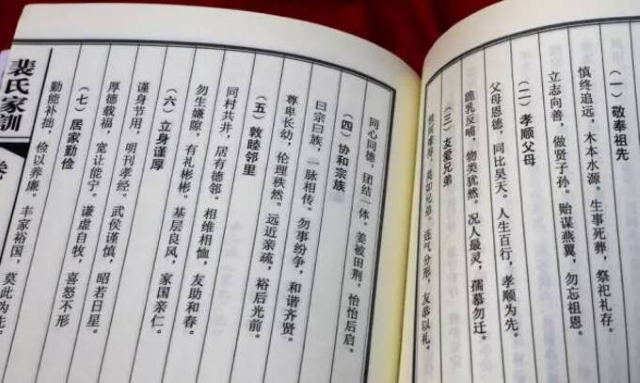 （一）敬奉祖先
慎终追远，木本水源。生事死葬，祭祀礼存。
立志向善，做贤子孙。贻谋燕翼，勿忘祖恩。
（二）孝顺父母
父母恩德，同比昊天。人生百行，孝顺为先。
跪乳反哺，物类犹然。况人最灵，孺慕勿迁。
（三）友爱兄弟
莫如兄弟。连气分形，友恭以礼。
同心同德，团结一体。姜被田荆，怡怡后启。
（四）协和宗族
曰宗曰族，一脉相传。勿事纷争，和谐齐贤。
尊卑长幼，伦理秩然。远近亲疏，裕后光前。
（五）敦睦邻里
同村共井，居有德邻。相维相恤，友助和春。
勿生嫌隙，有礼彬彬。基层良风，家国亲仁。
（六）立身谨厚
谨身节用，明刊孝经。武侯谨慎，昭若日星。
厚德载福，宽让能宁。谦虚自牧，喜怒不形
（七）居家勤俭
勤能补拙，俭以养廉。丰家裕国，莫此为先。
裴氏家训